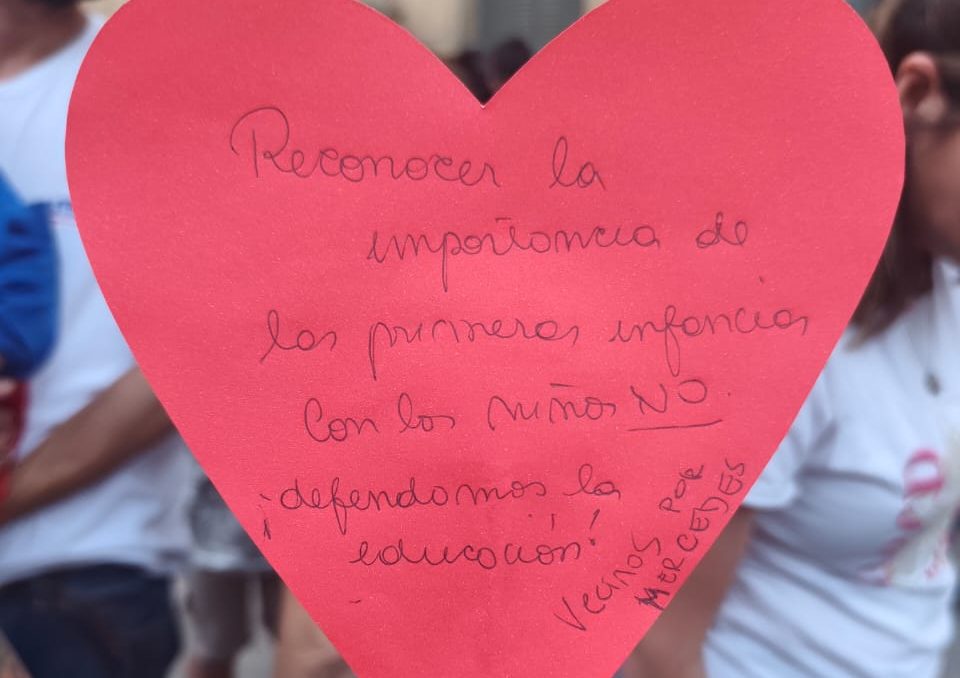 Reconocer la
importancia de
las primeras infancias
Con los niños NO.
¡defendamos la
educación!
Vecinos POR
MERCEDES